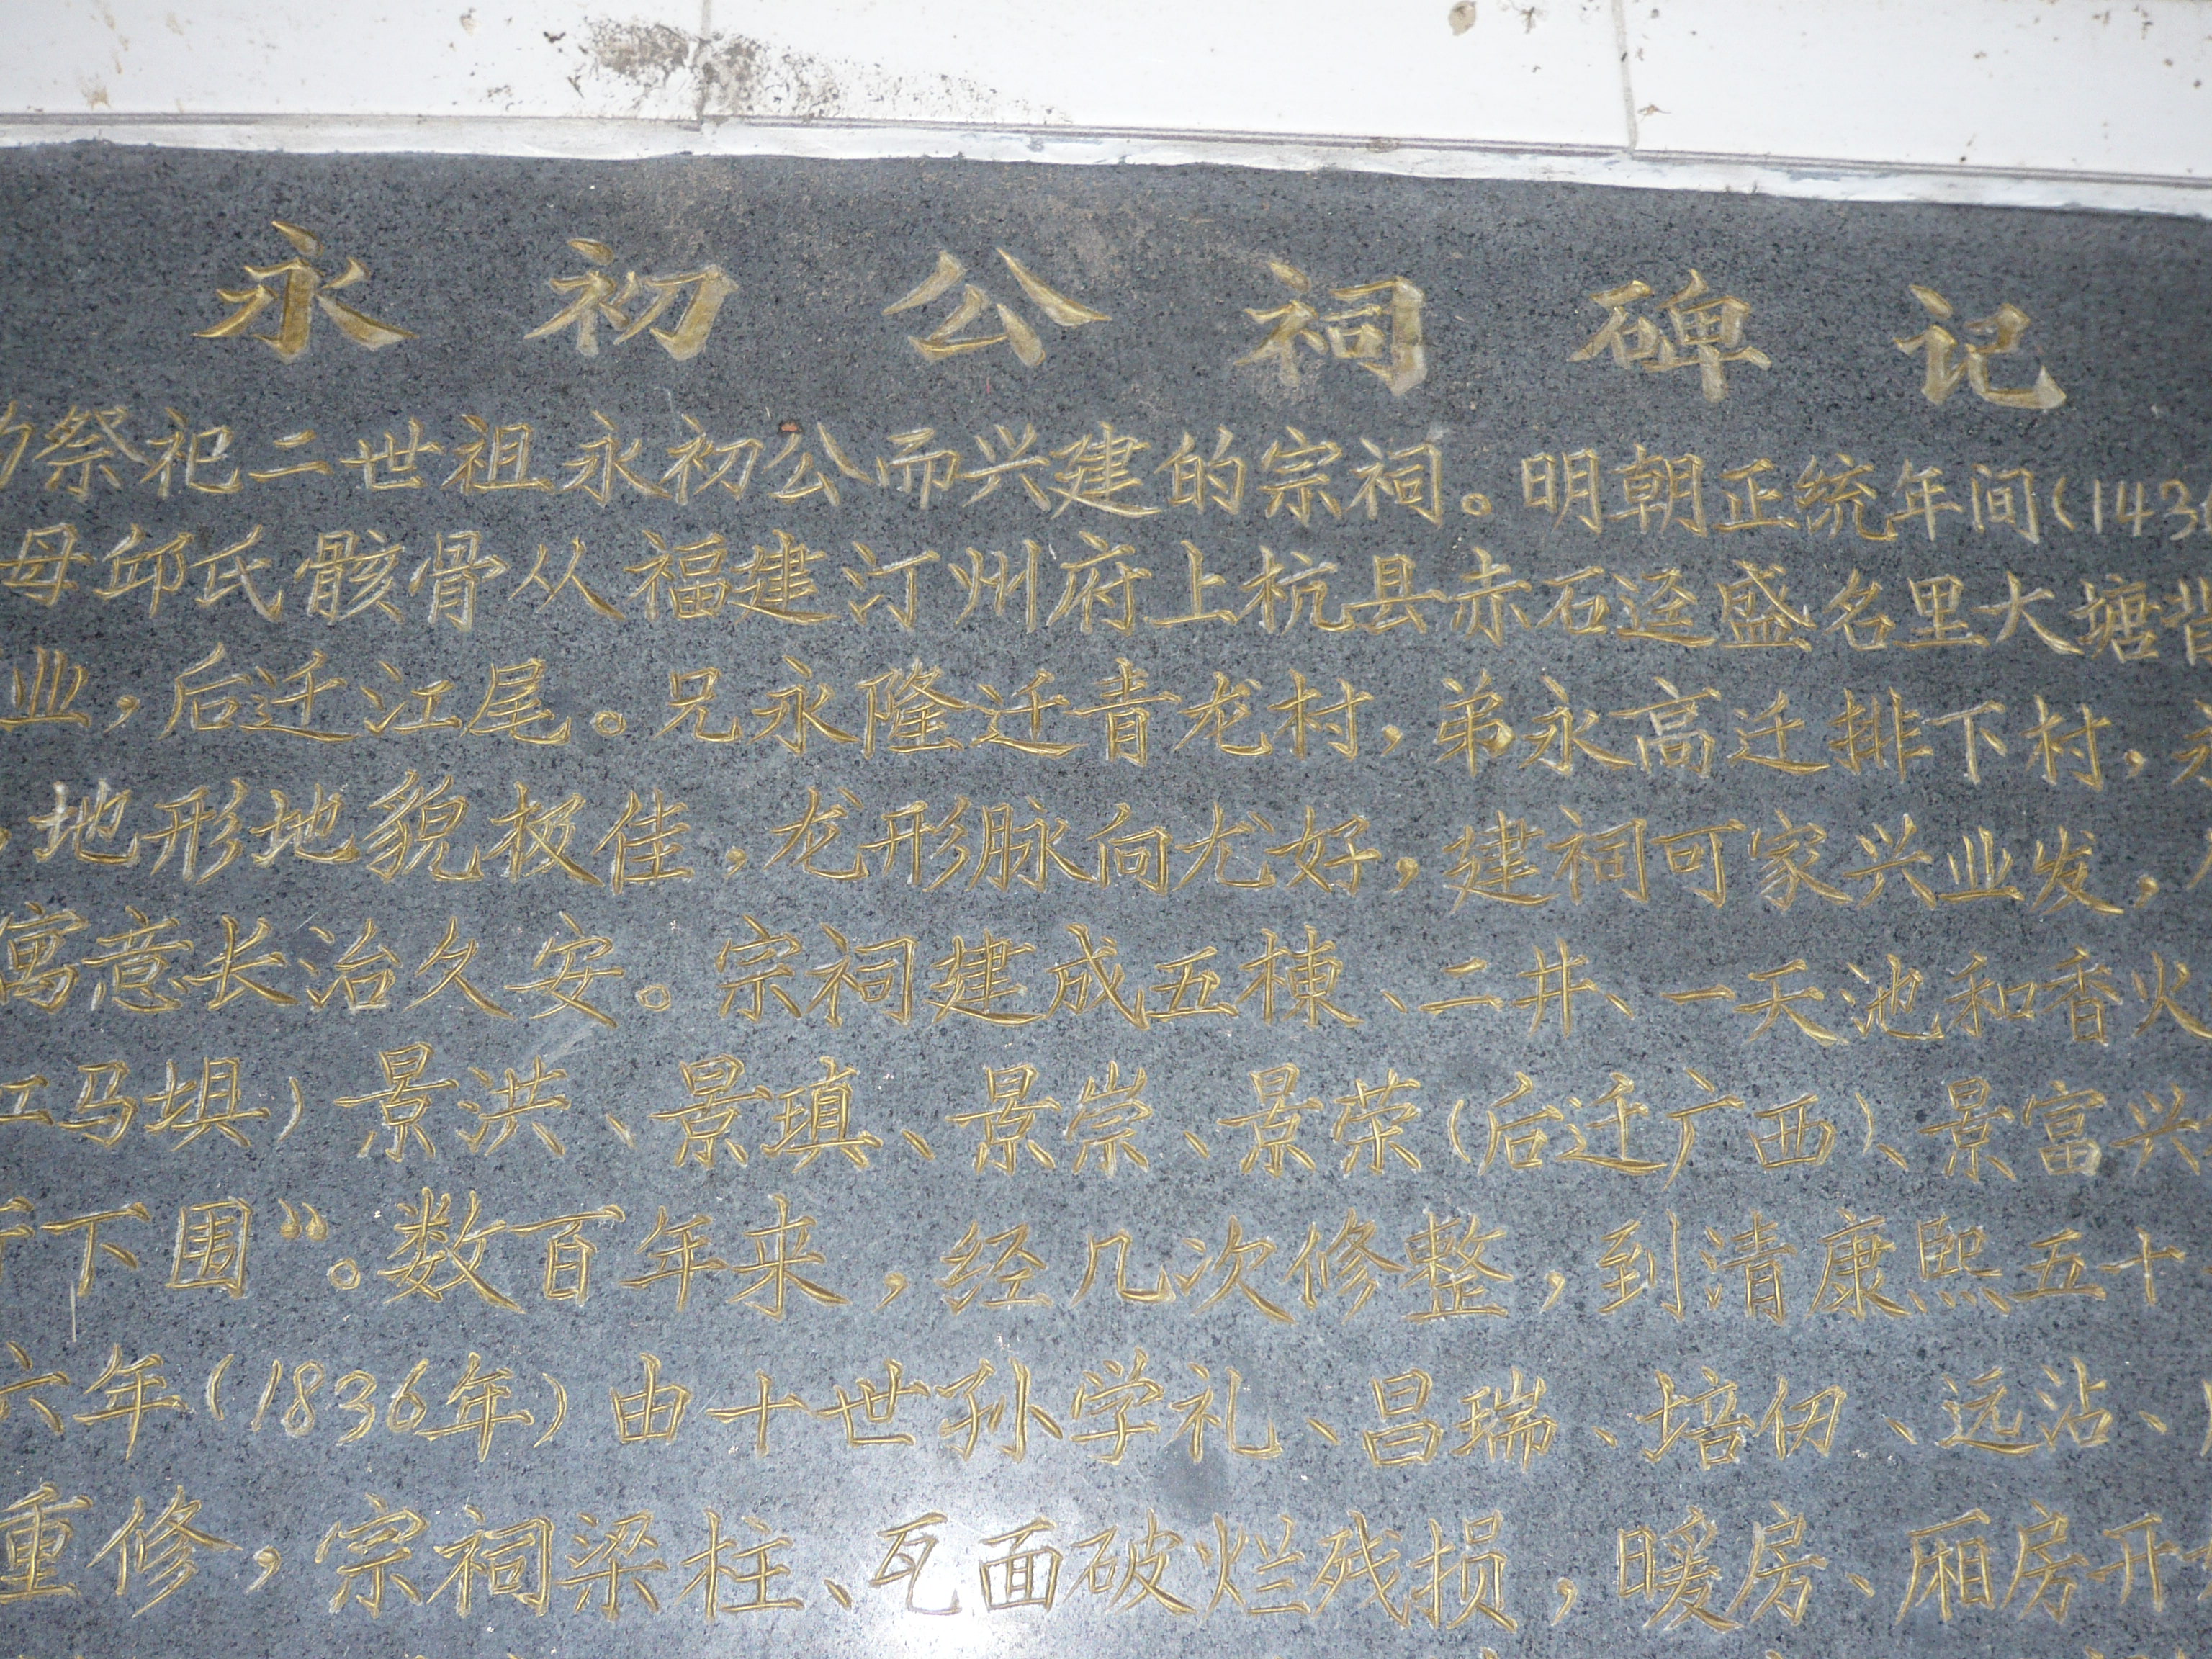 永初公祠碑记
祭祀二世祖永初公而兴建的宗祠。明朝正统年间(143
母邱氏骸骨从福建汀州府上杭县赤石迳盛名里大塘背
业,后迁江尾。兄永隆迁青龙村,弟永高迁排下村,
,地形地貌极佳,龙形脉向尤好,建祠可家兴业发,
寓意长治久安。宗祠建成五棟、二井、一天池和香火
马埧)景洪、景瑱、景崇、景荣(后迁广西)、景富兴
下围”。数百年来,经几次修整,到清康熙五十
六年(1836年)由十世孙学礼、昌瑞、培仞、远沾、
重修,宗祠梁柱、瓦面破烂残损,暖房、厢房开